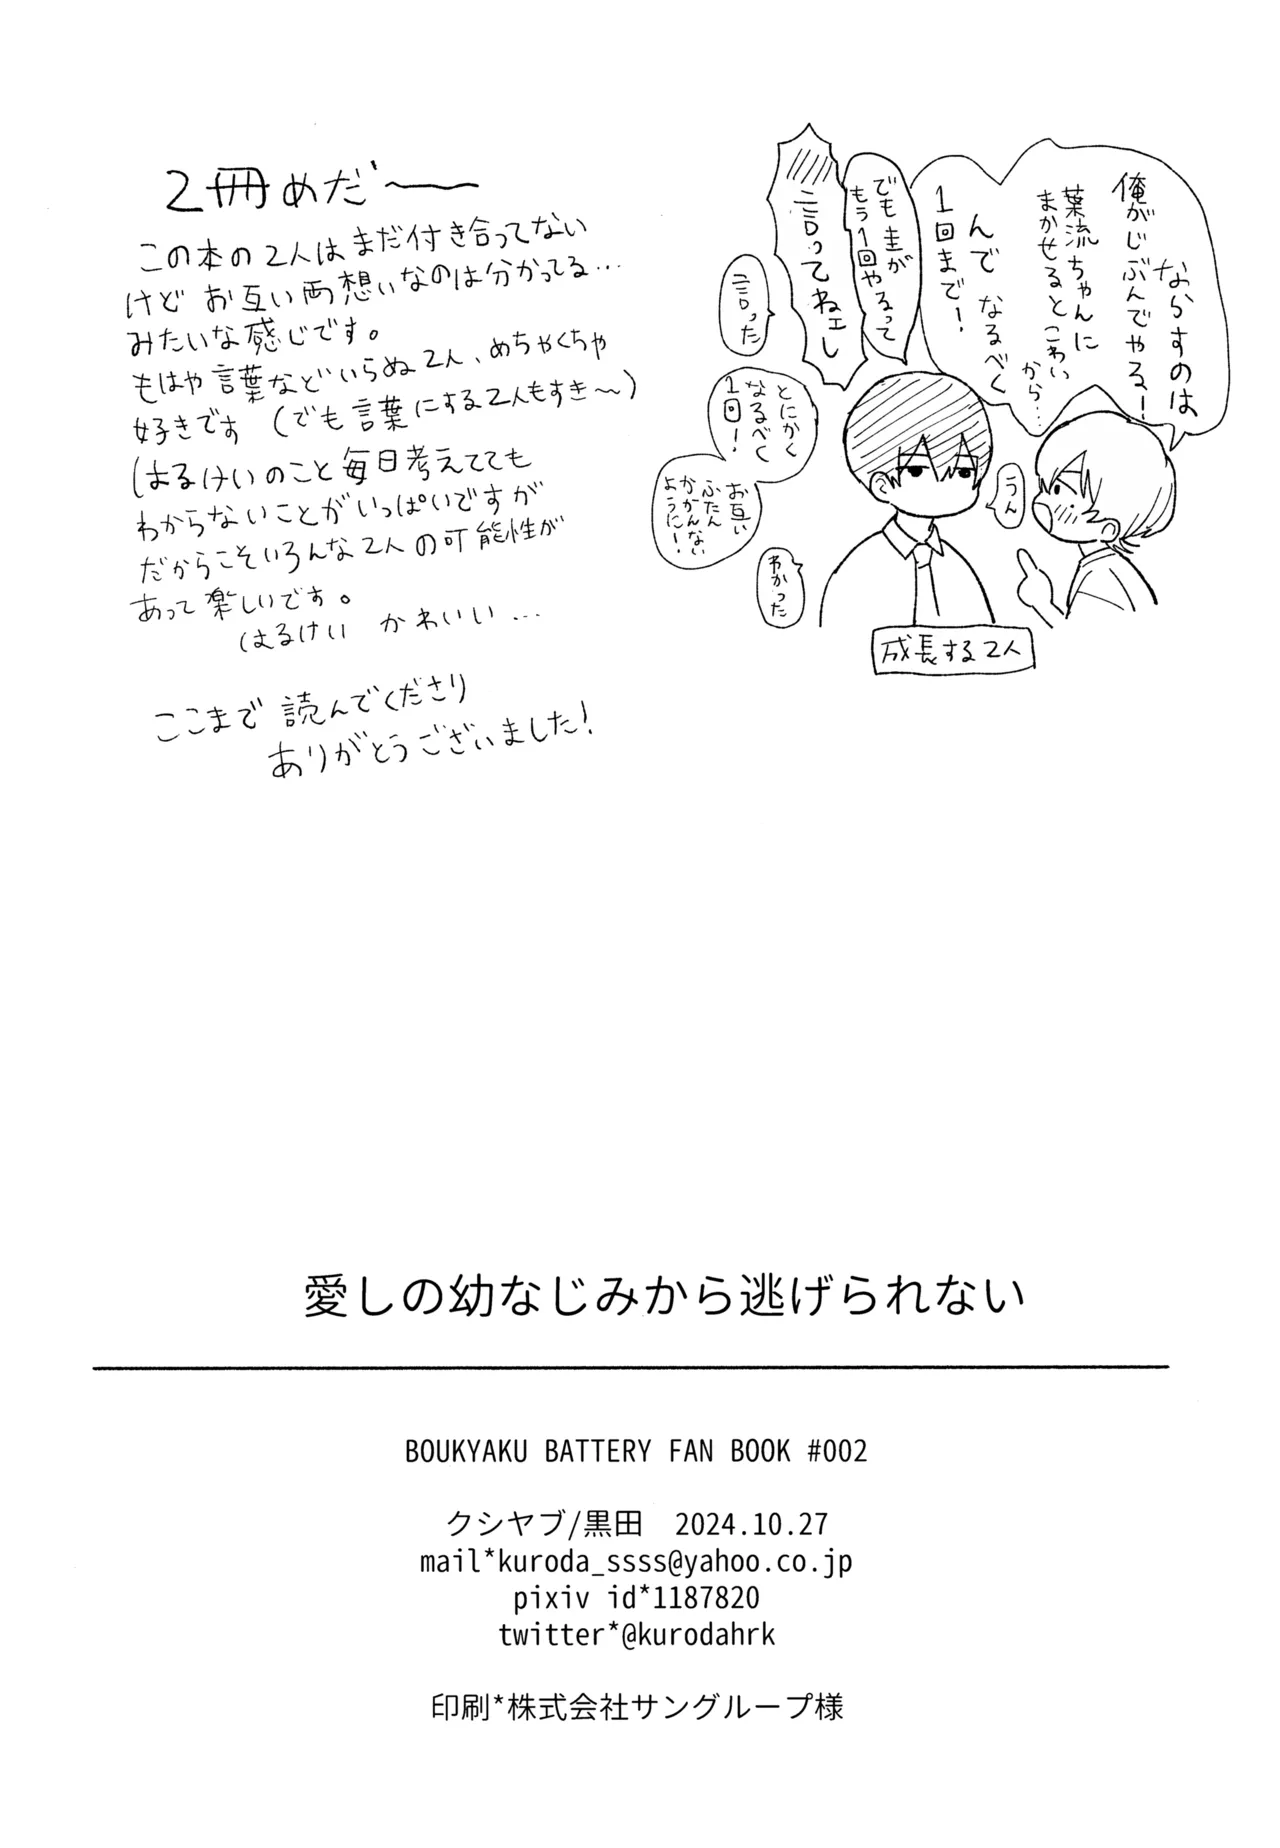 2冊めだ〜
この本の2人はまだ付き合ってない
けど お互い両想いなのは分かってる…
みたいな感じです。
もはや言葉などいらぬ2人、めちゃくちゃ
好きです (でも言葉にする2人もすき〜)
はるけいのこと毎日考えてても
わからないことがいっぱいですが
だからこそいろんな2人の可能性が
あって楽しいです。
はるけい かわいい…
ここまで 読んでくださり
ありがとうございました!
ならすのは
俺がじぶんでやる!
葉流ちゃんに
まかせるとこわい
から…
んで なるべく
1回まで!
うん
でも圭が
もう1回やるって
言ってねェし
言った
とにかく
なるべく
1回!
お互い
ふたん
かかんない
ように!
わかった
成長する2人
愛しの幼なじみから逃げられない
BOUKYAKU BATTERY FAN BOOK #002
クシヤブ/黒田 2024.10.27
mail*kuroda_ssss@yahoo.co.jp
pixiv id*1187820
twitter*@kurodahrk
印刷*株式会社サングループ様